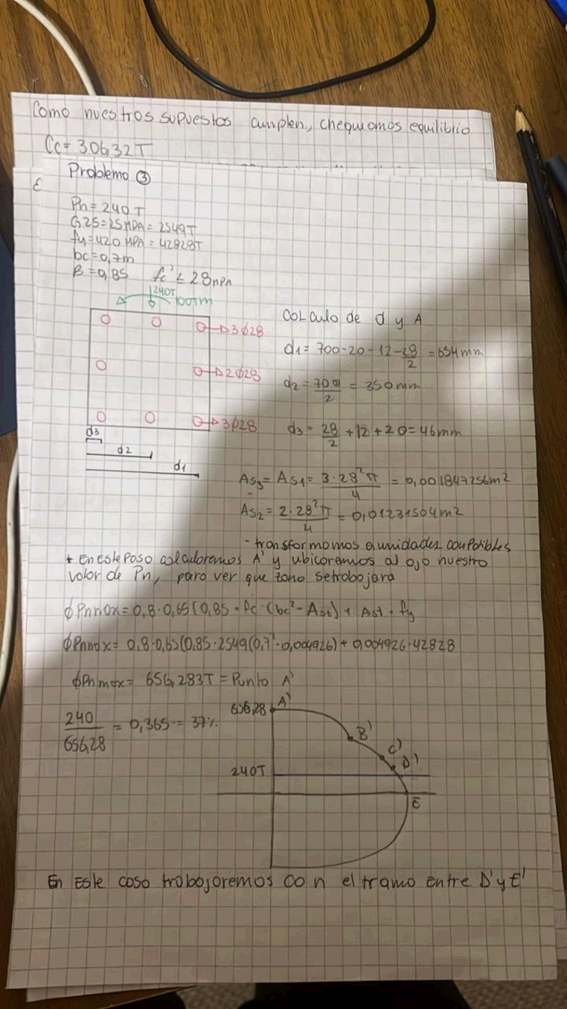 Como nuestros supuestos cumplen, chequeamos equilibrio
Cc= 306,32T
Problema ③
Pn = 240 T
G25=25MPA= 2549T
fy=420 MPA = 42828T
bc=0,7m
β=0,85 fc' ≤ 28MPA
240T
100Tm
3Φ28
2Φ28
3Φ28
d3
d2
d1
Calculo de d y A
d1= 700-20-12-28/2 = 654mm
d2= 700/2 = 350mm
d3= 28/2 +12+20= 46mm
As3= As1= 3·28²π/4 = 0,001847256m²
As2= 2·28²π/4 = 0,01231504m²
- transformamos a unidades compatibles
* En este paso calcularemos A' y ubicaremos al ojo nuestro
valor de Pn, para ver que zona se trabajara
ϕPnmax= 0,8·0,65(0,85·fc·(bc²-Ast)+Ast·fy
ϕPnmax= 0,8·0,65(0,85·2549(0,7²-0,004926)+0,004926·42828
ϕPnmax= 656,283T = Punto A'
240/656,28 = 0,365 = 37%
656,28
A'
B'
C'
D'
240T
E
En Este caso trabajaremos con el tramo entre D' y E'